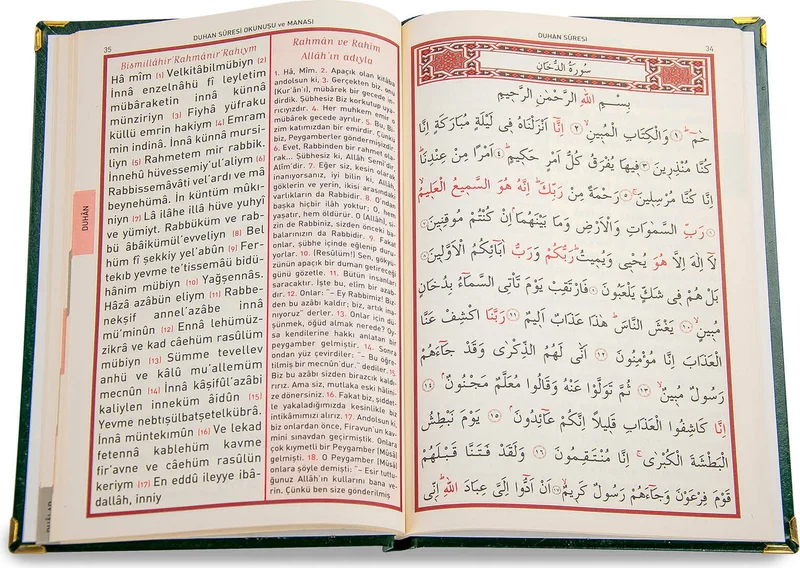 DUHAN SÛRESİ
34
سُورَةُ الدُّخَانِ
بِسْمِ اللهِ الرَّحْمٰنِ الرَّحِيمِ
حٰمٓ ﴿١﴾ وَالْكِتَابِ الْمُبِينِ ﴿٢﴾ اِنَّٓا اَنْزَلْنَاهُ فِى لَيْلَةٍ مُبَارَكَةٍ اِنَّا
كُنَّا مُنْذِرِينَ ﴿٣﴾ فِيهَا يُفْرَقُ كُلُّ اَمْرٍ حَكِيمٍ ﴿٤﴾ اَمْرًا مِنْ عِنْدِنَا
اِنَّا كُنَّا مُرْسِلِينَ ﴿٥﴾ رَحْمَةً مِنْ رَبِّكَ اِنَّهُ هُوَ السَّمِيعُ الْعَلِيمُ
﴿٦﴾ رَبِّ السَّمٰوَاتِ وَالْاَرْضِ وَمَا بَيْنَهُمَا اِنْ كُنْتُمْ مُوقِنِينَ ﴿٧﴾
لَٓا اِلٰهَ اِلَّا هُوَ يُحْيِى وَيُمِيتُ رَبُّكُمْ وَرَبُّ اٰبَٓائِكُمُ الْاَوَّلِينَ ﴿٨﴾
بَلْ هُمْ فِى شَكٍّ يَلْعَبُونَ ﴿٩﴾ فَارْتَقِبْ يَوْمَ تَاْتِى السَّمَٓاءُ بِدُخَانٍ
مُبِينٍ ﴿١٠﴾ يَغْشَى النَّاسَ هٰذَا عَذَابٌ اَلِيمٌ ﴿١١﴾ رَبَّنَا اكْشِفْ عَنَّا
الْعَذَابَ اِنَّا مُؤْمِنُونَ ﴿١٢﴾ اَنّٰى لَهُمُ الذِّكْرٰى وَقَدْ جَٓاءَهُمْ
رَسُولٌ مُبِينٌ ﴿١٣﴾ ثُمَّ تَوَلَّوْا عَنْهُ وَقَالُوا مُعَلَّمٌ مَجْنُونٌ ﴿١٤﴾
اِنَّا كَاشِفُوا الْعَذَابِ قَلِيلًا اِنَّكُمْ عَٓائِدُونَ ﴿١٥﴾ يَوْمَ نَبْطِشُ
الْبَطْشَةَ الْكُبْرٰى اِنَّا مُنْتَقِمُونَ ﴿١٦﴾ وَلَقَدْ فَتَنَّا قَبْلَهُمْ
قَوْمَ فِرْعَوْنَ وَجَٓاءَهُمْ رَسُولٌ كَرِيمٌ ﴿١٧﴾ اَنْ اَدُّٓوا اِلَىَّ عِبَادَ اللهِ اِنِّى
35
DUHAN SÛRESİ OKUNUŞU ve MANASI
Bismillâhir'Rahmânir'Rahıym
Hâ mîm (1) Velkitâbilmübiyn (2)
İnnâ enzelnâhü fî leyletim
mübâraketin innâ künnâ
münziriyn (3) Fiyhâ yüfraku
küllü emrin hakiym (4) Emram
min indinâ. İnnâ künnâ mursi-
liyn (5) Rahmetem mir rabbik.
İnnehû hüvessemiy'ul'aliym (6)
Rabbissemâvâti vel'ardı ve mâ
beynehümâ. İn küntüm mûki-
niyn (7) Lâ ilâhe illâ hüve yuhyî
ve yümiyt. Rabbüküm ve rab-
bü âbâikümül'evveliyn (8) Bel
hüm fî şekkiy yel'abûn (9) Fer-
tekıb yevme te'tissemâü bidü-
hânim mübiyn (10) Yağşennâs.
Hâzâ azâbün eliym (11) Rabbe-
nekşif annel'azâbe innâ
mü'minûn (12) Ennâ lehümüz-
zikrâ ve kad câehüm rasûlüm
mübiyn (13) Sümme tevellev
anhü ve kâlû mu'allemüm
mecnûn (14) İnnâ kâşifûl'azâbi
kaliylen inneküm âidûn (15)
Yevme nebtışülbatşetelkübrâ.
İnnâ müntekimûn (16) Ve lekad
fetennâ kablehüm kavme
fir'avne ve câehüm rasûlün
keriym (17) En eddû ileyye ibâ-
dallâh, inniy
Rahmân ve Rahîm
Allâh'ın adıyla
1. Hâ, Mîm. 2. Apaçık olan kitâba
andolsun ki, 3. Gerçekten biz, onu
(Kur'ân'ı), mübârek bir gecede in-
dirdik. Şübhesiz Biz korkutup uya-
rıcıyızdır. 4. Her muhkem emir o
mübârek gecede ayrılır. 5. Bu, Bi-
zim katımızdan bir emirdir. Çünkü
biz, Peygamberler göndermişizdir.
6. Evet, Rabbinden bir rahmet ola-
rak... Şübhesiz ki, Allâh Semî'dir
Alîm'dir. 7. Eğer siz, kesin olarak
inanıyorsanız, iyi bilin ki, Allâh,
göklerin ve yerin, ikisi arasında-
varlıkların da Rabbidir. 8. O'ndan
başka hiçbir ilah yoktur. O, hem
yaşatır, hem öldürür. O (Allâh), si-
zin de Rabbiniz, sizden önceki ba-
balarınızın da Rabbidir. 9. Fakat
onlar, şübhe içinde eğlenip duru-
yorlar. 10. (Resûlüm!) Sen, gökyü-
zünün apaçık bir duman getireceği
günü gözetle. 11. Bütün insanları
saracaktır. İşte bu, elîm bir azab-
dır. 12. Onlar: "– Ey Rabbimiz! Biz-
den bu azâbı kaldır; biz, artık ina-
nıyoruz" derler. 13. Onlar için dü-
şünmek, öğüd almak nerede? Oy-
sa kendilerine hakkı anlatan bir
peygamber gelmişti. 14. Sonra
ondan yüz çevirdiler: "– Bu öğre-
tilmiş bir mecnûn'dur." dediler. 15.
Biz bu azâbı sizden birazcık kaldı-
rırız. Ama siz, mutlaka eski hâlini-
ze dönersiniz. 16. Fakat biz, şiddet-
le yakaladığımızda kesinlikle biz
intikâmımızı alırız. 17. Andolsun ki,
biz onlardan önce, Firavun'un kav-
mini sınavdan geçirmiştik. Onlara
çok kıymetli bir Peygamber (Mûsâ)
gelmişti. 18. O Peygamber (Mûsâ)
onlara şöyle demişti: "– Esir tuttu-
ğunuz Allâh'ın kullarını bana ve-
rin. Çünkü ben size gönderilmiş
DUHÂN